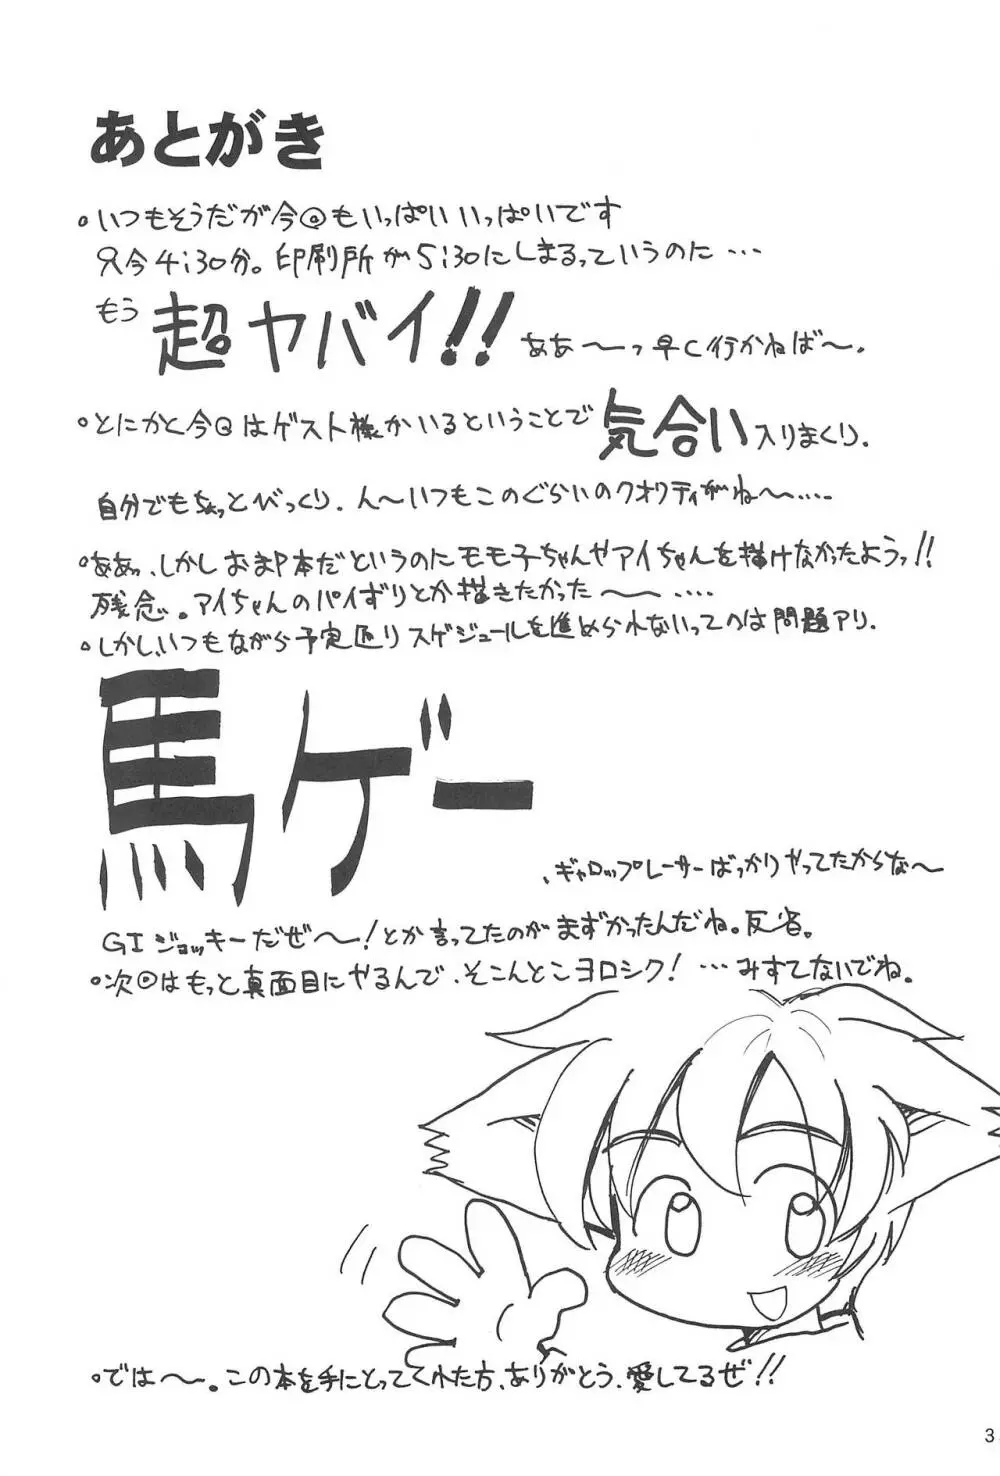 あとがき
・いつもそうだが今回もいっぱいいっぱいです
只今4:30分。印刷所が5:30にしまるっていうのに…
もう超ヤバイ!! ああ〜っ早く行かねば〜。
・とにかく今回はゲスト様がいるということで気合い入りまくり。
自分でもちょっとびっくり。ん〜いつもこのぐらいのクオリティがね〜……
・ああっ、しかしおまP本だというのにモモ子ちゃんやアイちゃんを描けなかったようっ!!
残念。アイちゃんのパイずりとか描きたかった〜……
・しかし、いつもながら予定通りスケジュールを進められないってのは問題アリ。
馬ゲー
、ギャロップレーサーばっかりやってたからな〜
GIジョッキーだぜ〜!とか言ってたのがまずかったんだね。反省。
・次回はもっと真面目にやるんで、そこんとこヨロシク!…みすてないでね。
・では〜。この本を手にとってくれた方、ありがとう、愛してるぜ!!
3